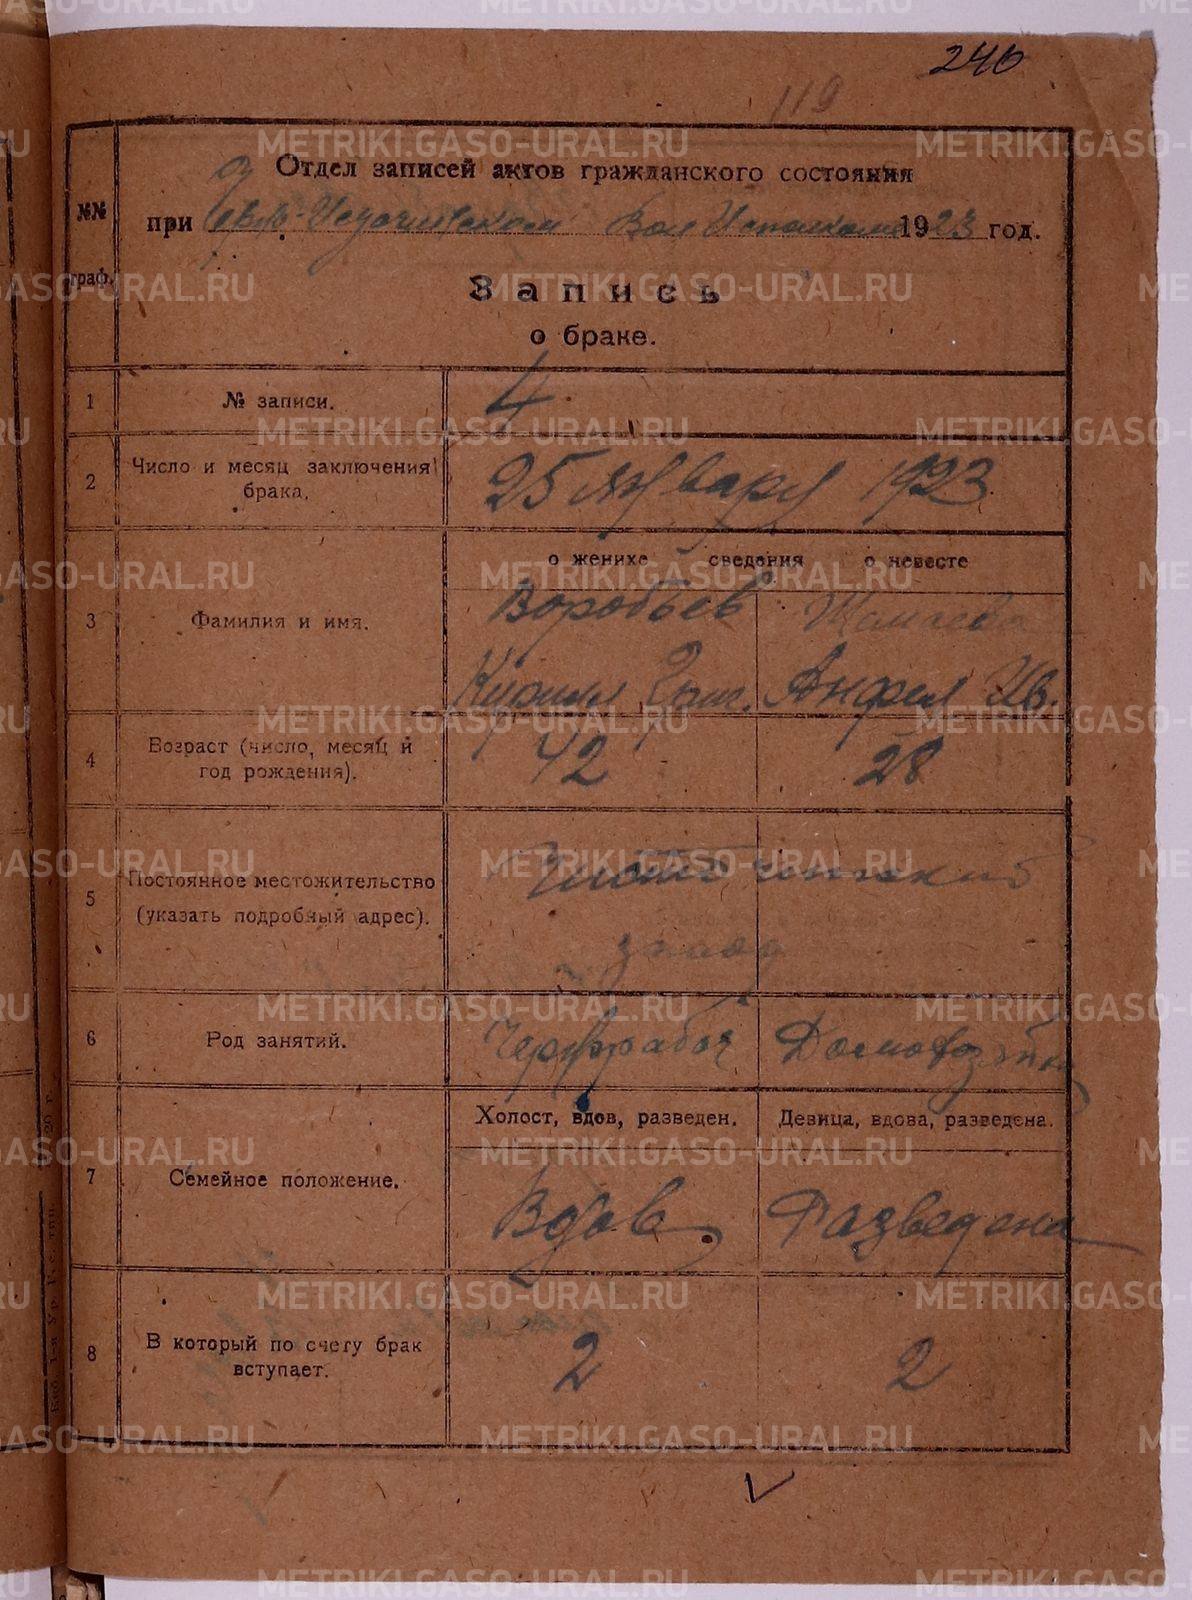 240
119
№№ граф.
Отдел записей актов гражданского состояния
при Вол Исполкоме 1923 год.
Запись
о браке.
1 № записи. 4
2 Число и месяц заключения брака. 25 января 1923
о женихе сведения о невесте
3 Фамилия и имя.
Воробьев
Кирилл Григ. Анфия Ив.
4 Возраст (число, месяц и год рождения). 42 28
5 Постоянное местожительство (указать подробный адрес).
завод
6 Род занятий. Чернораб Домохозяйка
Холост, вдов, разведен. Девица, вдова, разведена.
7 Семейное положение. Вдов Разведена
8 В который по счету брак вступает. 2 2
METRIKI.GASO-URAL.RU